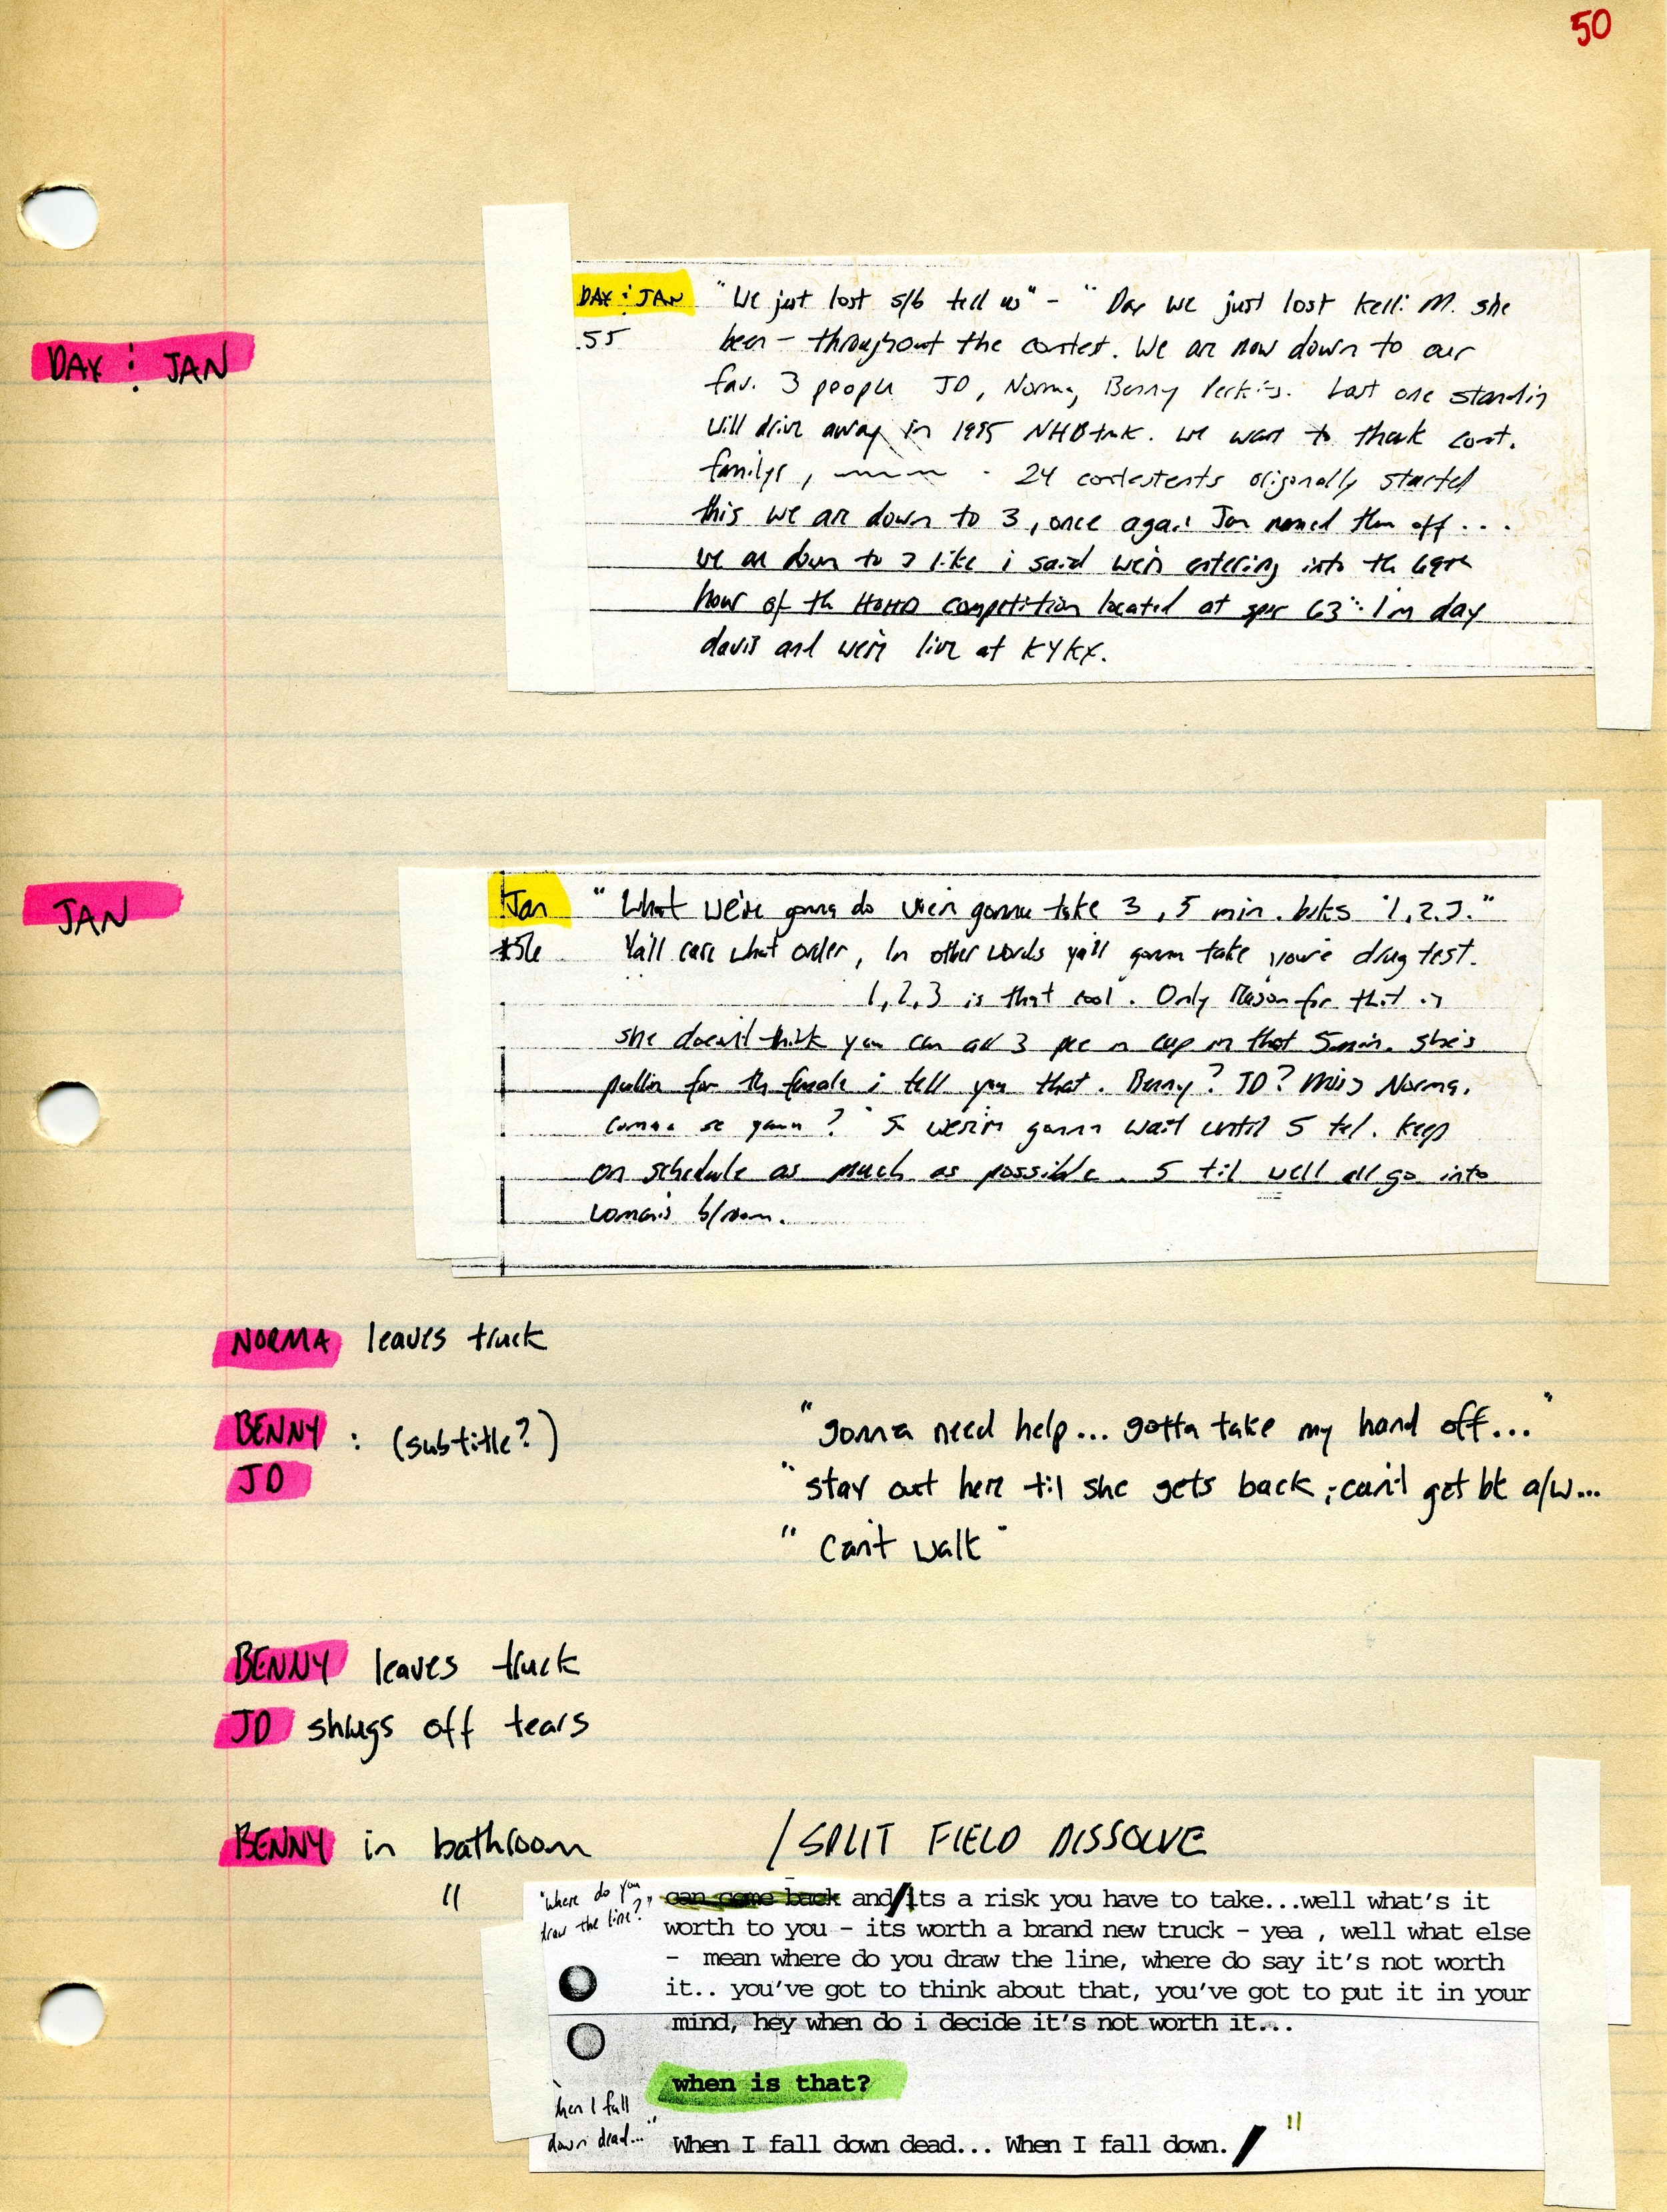 50
DAY : JAN
DAY : JAN "We just lost s/b tell us" - "Day we just lost Kelli M. she
.55 been - throughout the contest. We are now down to our
fav. 3 people JD, Norma, Benny Perkins. Last one standin
will drive away in 1995 NHB truk. We want to thank cont.
familys, - 24 contestents origonally started
this we are down to 3, once again Jan named them off...
we are down to 3 like i said we'r entering into th 69th
hour of th HOHB competition located at spur 63": I'm day
davis and we'r live at KYKX.
JAN
Jan "What we're gonna do we'r gonna take 3, 5 min. "1,2,3."
#56 Ya'll care what order, In other words ya'll gonna take you're drug test.
1,2,3 is that cool". Only reason for that is
she doesn't think you can all 3 pee n cup in that 5min. she's
pullin for th female i tell you that. Benny? JD? Miss Norma,
? So gonna wait until 5 tel. keep
on schedule as much as possible.. 5 til we'll all go into
b/room.
NORMA leaves truck
BENNY : (subtitle?) "gonna need help... gotta take my hand off..."
JD "stay out here til she gets back, i can't get bk a/w...
"can't walk"
BENNY leaves truck
JD shrugs off tears
BENNY in bathroom /SPLIT FIELD DISSOLVE
" "where do you draw the line?" can come back and/its a risk you have to take...well what's it
worth to you - its worth a brand new truck - yea , well what else
- mean where do you draw the line, where do say it's not worth
it.. you've got to think about that, you've got to put it in your
mind, hey when do i decide it's not worth it...
when is that?
hen I fall
down dead..." When I fall down dead... When I fall down. / "